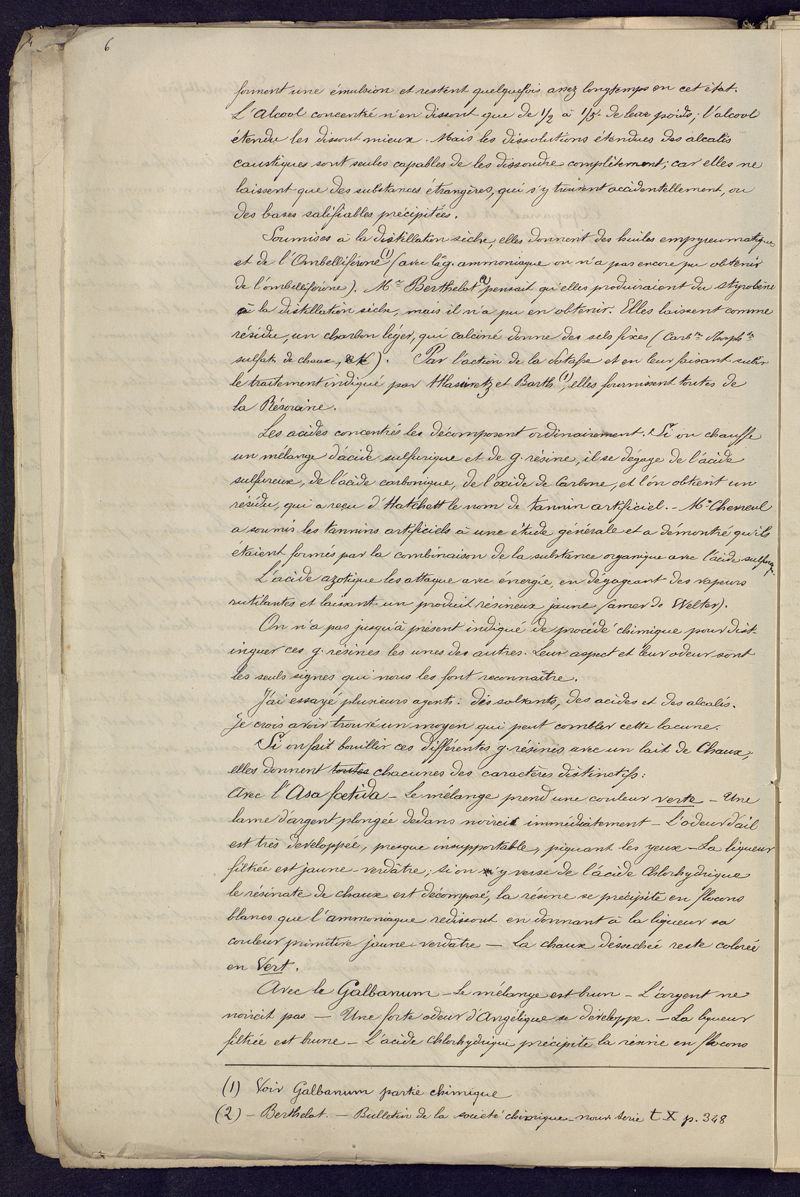 6
forment une émulsion et restent quelquefois assez longtemps en cet état.
L'Alcool concentré n'en dissout que de 1/2 à 1/5 de leur poids; l'alcool
étendu les dissout mieux. Mais les dissolutions étendues des alcalis
caustiques sont seules capables de les dissoudre complètement; car elles ne
laissent que des substances étrangères, qui s'y trouvent accidentellement, ou
des bases salifiables précipitées.
Soumises à la distillation sèche, elles donnent des huiles empyreumatiques
et de l'Ombelliférone (1) (avec la g. ammoniaque on n'a pas encore pu obtenir
de l'ombelliférone). Mr Berthelot (2) pensait qu'elles produiraient du styrolène
à la distillation sèche, mais il n'a pu en obtenir. Elles laissent comme
résidu, un charbon léger, qui calciné donne des sels fixes (Carbte Phosphte
sulfate de chaux). Par l'action de la potasse et en leur faisant subir
le traitement indiqué par Hlasiwetz et Barth (1), elles fournissent toutes de
la Résorcine.
Les acides concentrés les décomposent ordinairement. Si on chauffe
un mélange d'acide sulfurique et de g. résine, il se dégage de l'acide
sulfureux, de l'acide carbonique, de l'oxide de Carbone, et l'on obtient un
résidu, qui a reçu d'Hatchett le nom de tannin artificiel. - Mr Chevreul
a soumis les tannins artificiels à une étude générale et a démontré qu'ils
étaient formés par la combinaison de la substance organique avec l'acide sulfuriq.
L'acide azotique les attaque avec énergie, en dégageant des vapeurs
rutilantes et laissant un produit résineux jaune (amer de Welter).
On n'a pas jusqu'à présent indiqué de procédé chimique pour dist-
inguer ces g. résines les unes des autres. Leur aspect et leur odeur sont
les seuls signes qui nous les font reconnaître.
J'ai essayé plusieurs agents: des solvants, des acides et des alcalis.
Je crois avoir trouvé un moyen qui peut combler cette lacune.
Si on fait bouillir ces différentes g. résines avec un lait de Chaux,
elles donnent toutes chacunes des caractères distinctifs:
Avec l'Asa fœtida - Le mélange prend une couleur verte - Une
lame d'argent plongée dedans noircit immédiatement - L'odeur d'ail
est très développée, presque insupportable, piquant les yeux - La liqueur
filtrée est jaune-verdâtre; si on y verse de l'acide chlorhydrique
le résinate de chaux est décomposé, la résine se précipite en flocons
blancs que l'ammoniaque redissout en donnant à la liqueur sa
couleur primitive jaune-verdâtre - La chaux désséchée reste colorée
en Vert.
Avec le Galbanum - Le mélange est brun - L'argent ne
noircit pas - Une forte odeur d'Angélique se développe. - La liqueur
filtrée est brune - L'acide chlorhydrique précipite la résine en flocons
(1) Voir Galbanum partie chimique
(2) - Berthelot. - Bulletin de la société chimique - nouv serie t. X p. 348